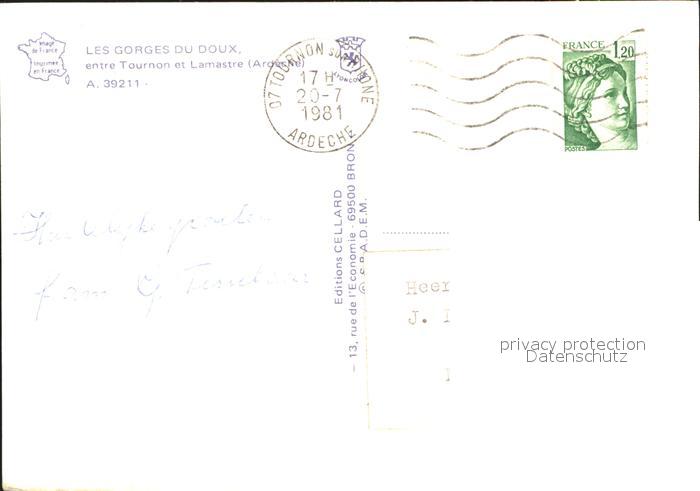 Image
de France
Imprimée
en France
LES GORGES DU DOUX,
entre Tournon et Lamastre (Ardèche)
A. 39211 -
07 TOURNON SUR RHONE
17 H
20-7
1981
ARDECHE
FRANCE 1,20
POSTES
Hartelijke groeten
fam
Editions CELLARD
– 13, rue de l'Economie - 69500 BRON
© S.P.A.D.E.M.
Heer
J.
privacy protection
Datenschutz